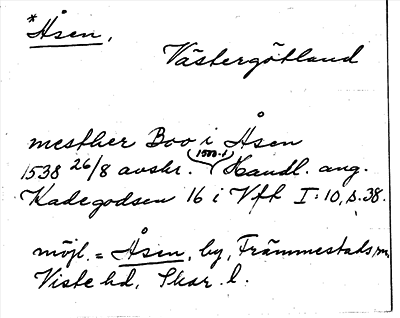 *Åsen.
Västergötland
mesther Boo i Åsen
1538 26/8 avskr. (1500-t.) Handl. ang.
Kadegodsen 16 i Vft I:10, s. 38.
möjl. = Åsen, by, Främmestads sn,
Viste hd, Skar. l.